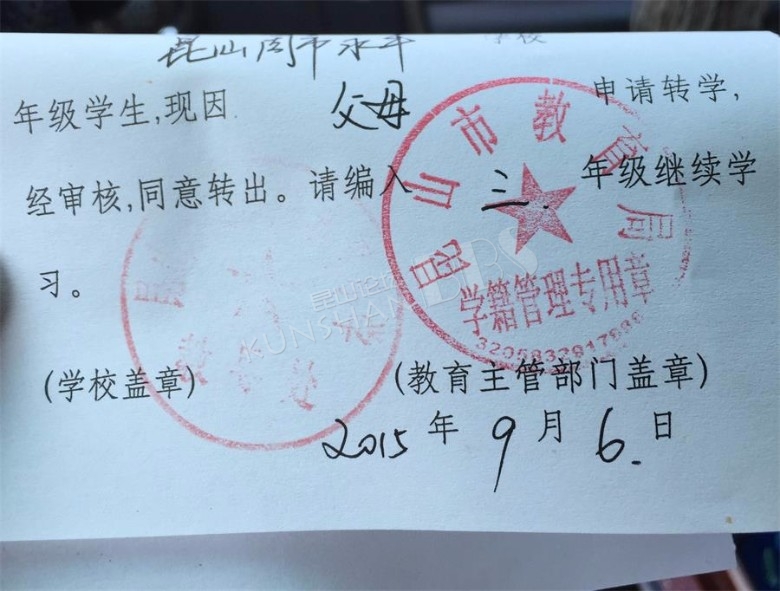 昆山周市永平 学校
年级学生,现因 父母 申请转学,
经审核,同意转出。请编入 三. 年级继续学
习。
昆山市教育局
学籍管理专用章
昆山论坛 BBS
KUNSHAN
(学校盖章)
(教育主管部门盖章)
2015 年 9 月 6. 日